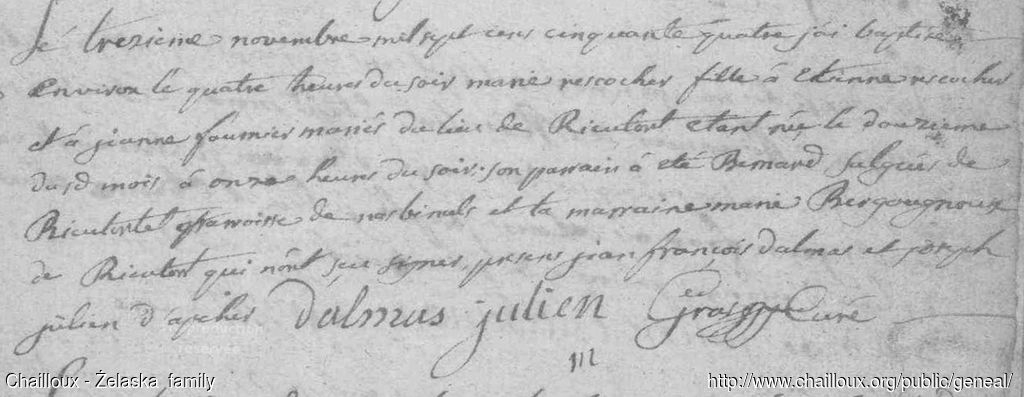 Le trezieme novembre mil sept cens cinquante quatre j'ai baptise
environ le quatre heures du soir marie rescoches fille à Etienne rescoches
et à jeanne fournier mariés du lieu de Rieutort etant née le douzieme
du sd mois à onze heures du soir. son parrain à eté Bernard salgues de
Rieutortet parroisse de nasbinals et la marraine marie Bergougnoux
de Rieutort qui n'ont sçu signer, presens jean françois dalmas et joseph
julien d'apcher Dalmas julien Curé
Chailloux - Želaska family
http://www.chailloux.org/public/geneal/